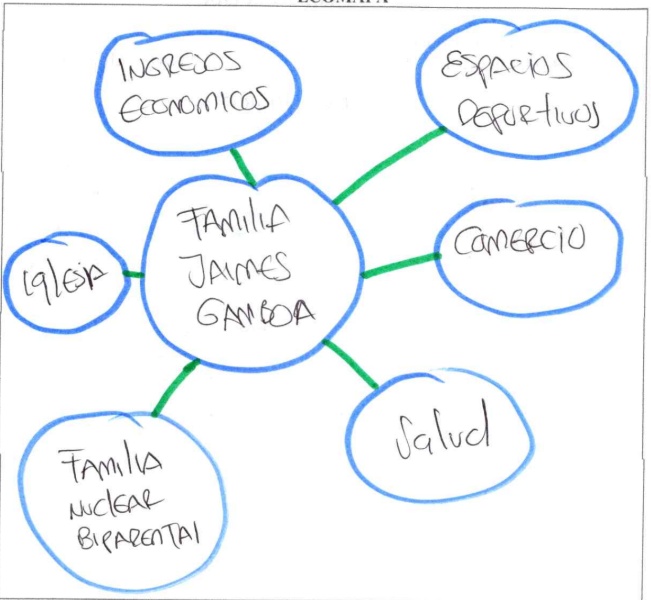 ECOMAPA
INGRESOS
ECONOMICOS
ESPACIOS
DEPORTIVOS
FAMILIA
JAIMES
GAMBOA
COMERCIO
IglESIA
Salud
FAMILIA
NUCLEAR
BIPARENTAl